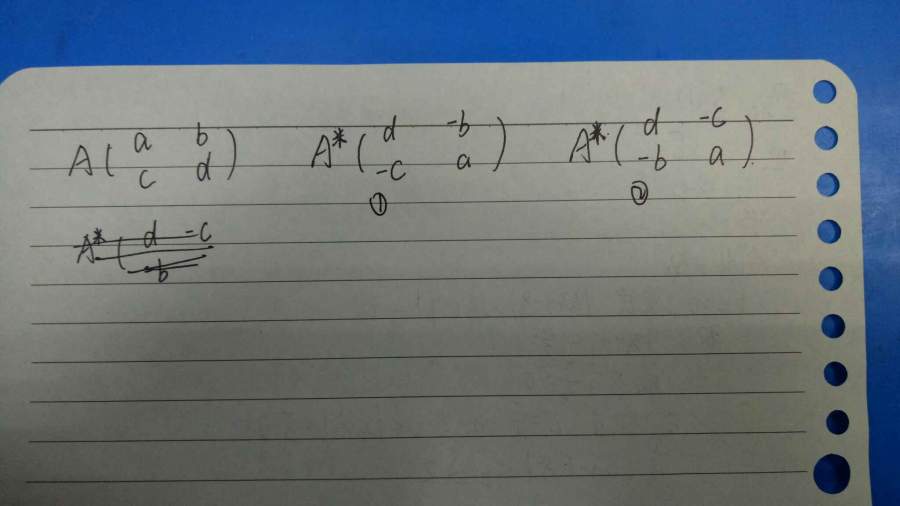 A ( a b c d ) A* ( d -b -c a ) A* ( d -c -b a )
① ②
A* ( d -c b